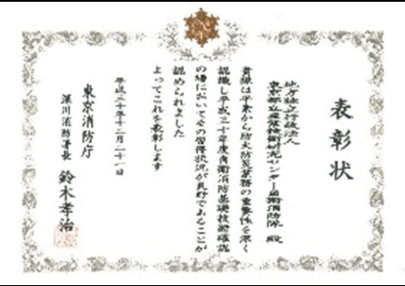 表彰状
地方独立行政法人
東京都立産業技術研究センター自衛消防隊 殿
貴隊は平素から防火防災業務の重要性を深く
認識し平成三十年度自衛消防基礎技能確認
の場においてその習得状況が良好であることが
認められました
よってこれを表彰します
平成三十年十二月二十一日
東京消防庁
深川消防署長 鈴木孝治